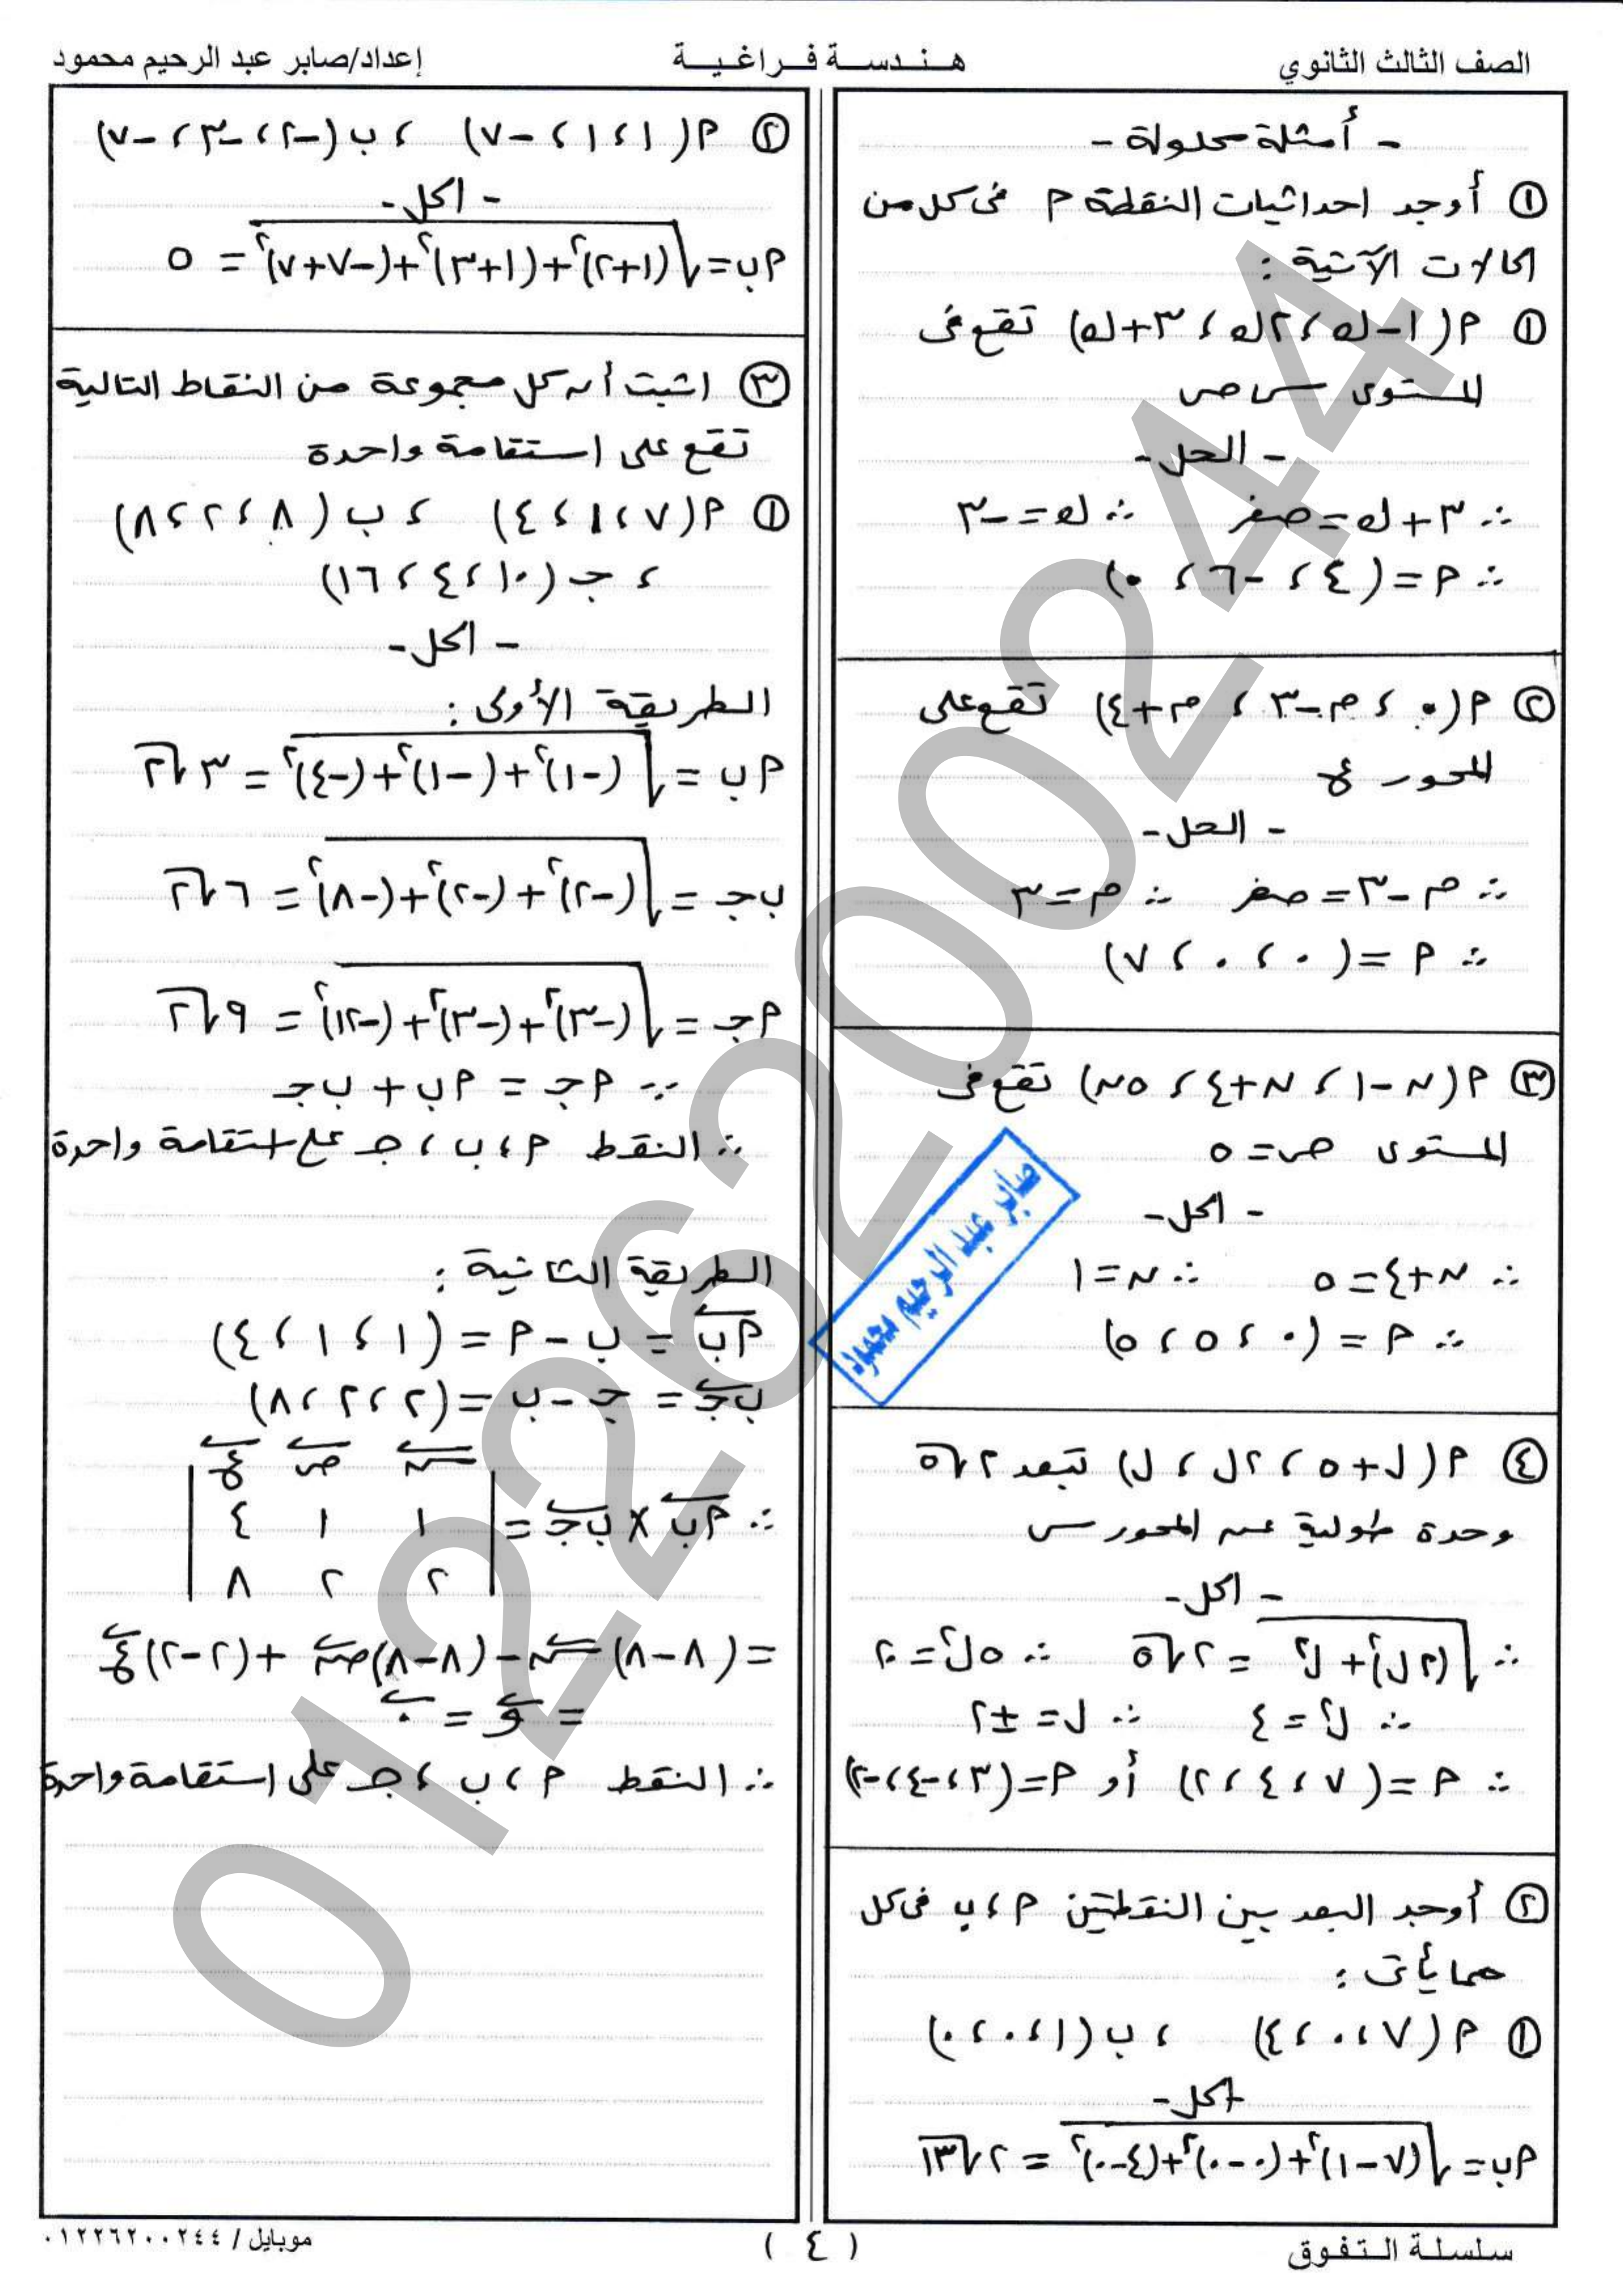 الصف الثالث الثانوي
هـنـدسـة فـراغـيـة
إعداد/صابر عبد الرحيم محمود
- أمثلة محلولة -
① أوجد احداثيات النقطة م فى كل من
الحالات الآتية :
① م(١-ك ، ٢ك ، ٣+ك) تقع فى
المستوى س ص
- الحل -
∴ ٣+ك=صفر ∴ ك=-٣
∴ م=(٤ ، -٦ ، ٠)
② م(٠ ، م-٣ ، م+٤) تقع على
المحور ع
- الحل -
∴ م-٣=صفر ∴ م=٣
∴ م=(٠ ، ٠ ، ٧)
③ م(ن-١ ، ن+٤ ، ٥ن) تقع فى
المستوى ص=٥
- الحل -
∴ ن+٤=٥ ∴ ن=١
∴ م=(٠ ، ٥ ، ٥)
④ م(ل+٥ ، ٢ل ، ل) تبعد ٢√٥
وحدة طولية عن المحور س
- الحل -
∴ √((٢ل)²+ل²) = ٢√٥ ∴ ٥ل²=٢٠
∴ ل²=٤ ∴ ل=±٢
∴ م=(٧ ، ٤ ، ٢) أو م=(٣ ، -٤ ، -٢)
② أوجد البعد بين النقطتين م ، ب فى كل
مما يأتى :
① م(٧ ، ٠ ، ٤) ، ب(١ ، ٠ ، ٠)
- الحل -
م ب=√((٧-١)²+(٠-٠)²+(٤-٠)²) = ٢√١٣
② م(١ ، ١ ، -٧) ، ب(-٢ ، -٣ ، -٧)
- الحل -
م ب=√((١+٢)²+(١+٣)²+(-٧+٧)²) = ٥
③ اثبت أن كل مجموعة من النقاط التالية
تقع على استقامة واحدة
① م(٧ ، ١ ، ٤) ، ب(٨ ، ٢ ، ٨)
، جـ(١٠ ، ٤ ، ١٦)
- الحل -
الطريقة الأولى :
م ب = √((-١)²+(-١)²+(-٤)²) = ٣√٢
ب جـ = √((-٢)²+(-٢)²+(-٨)²) = ٦√٢
م جـ = √((-٣)²+(-٣)²+(-١٢)²) = ٩√٢
∵ م جـ = م ب + ب جـ
∴ النقط م ، ب ، جـ على استقامة واحدة
الطريقة الثانية :
م ب = ب - م = (١ ، ١ ، ٤)
ب جـ = جـ - ب = (٢ ، ٢ ، ٨)
س ص ع
∴ م ب × ب جـ = | ١ ١ ٤ |
| ٢ ٢ ٨ |
= (٨-٨)س - (٨-٨)ص + (٢-٢)ع
= و = ٠
∴ النقط م ، ب ، جـ على استقامة واحدة
صابر عبد الرحيم محمود
01226200244
سلسلة التفوق
( ٤ )
موبايل / ٠١٢٢٦٢٠٠٢٤٤